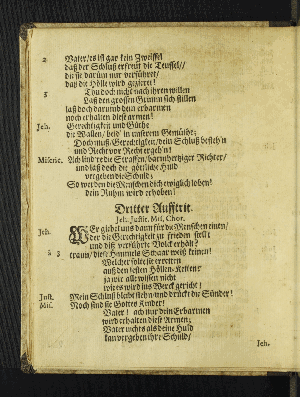 2 Vater/es ist gar kein Zweiffel
daß der Schluß erfreut die Teuffel//
die sie darüm nur verführet/
daß die Hölle wird gezieret!
3 Thu doch nicht nach ihren willen
Laß den grossen Grimm sich stillen
laß doch darumb dein erbarmen
noch erhalten diese armen!
Jeh. Gerechtigkeit und Güthe
die Wallen/ beid' in unserem Gemüht;
Doch muß/ Gerechtigkeit/ dein Schluß besteh'n
und Recht vor Recht ergeh'n!
Miseric. Ach lindre die Straffen/ barmhertziger Richter/
und laß doch die göttliche Huld
vergeben die Schuld;
So werden die Menschen dich ewiglich loben!
dein Ruhm wird erhoben!
Dritter Aufftrit.
Jeh. Justit. Mis. Chor.
Jeh. WEr giebet uns dann für die Menschen einen/
der die Gerechtigkeit zu frieden stellt
und diß verführte Volck erhält?
traun/ diese Himmels Schaar weiß keinen!
Welcher solte sie erretten
auß den festen Höllen-Ketten
ja wie alle wissen nicht
wie es wird ins Werck gericht!
Just. Mein Schluß bleibt stehn und drückt die Sünder!
Mis. Noch sind sie Gottes Kinder!
Vater! ach nur dein Erbarmen
wird erhalten diese Armen;
Vater nichts als deine Huld
kan vergeben ihre Schuld/
Jeh.